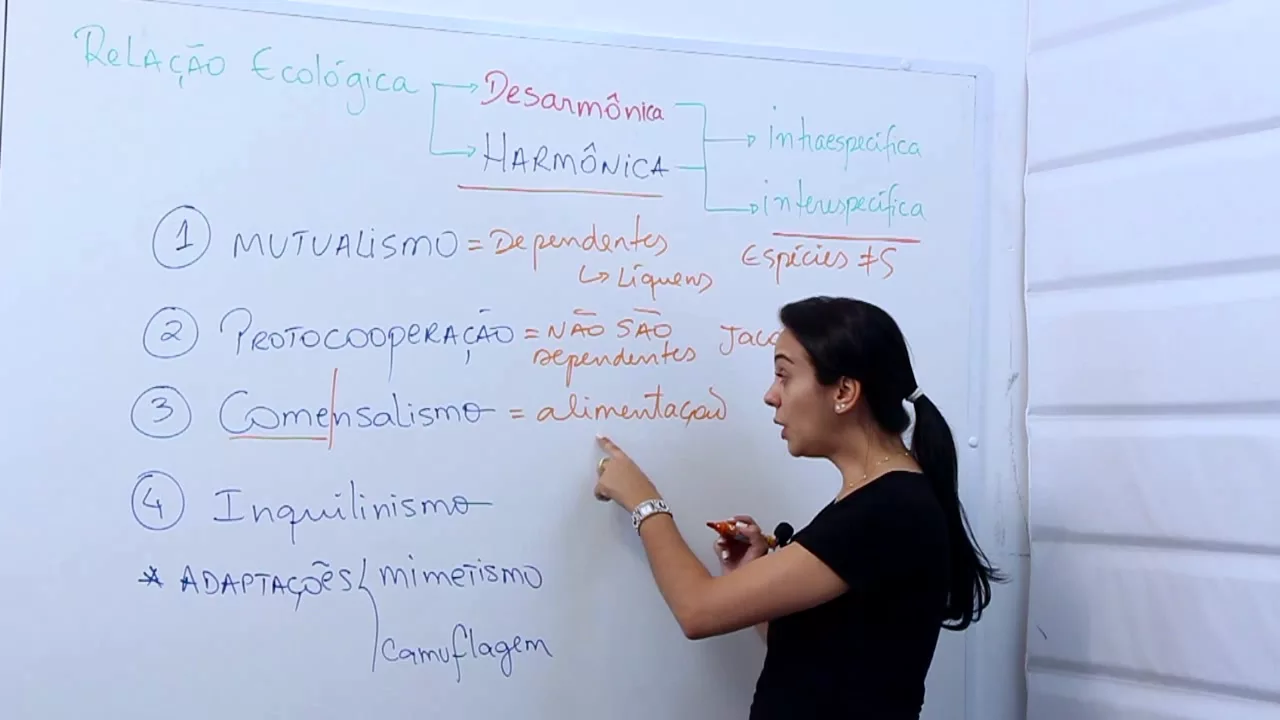 Relação Ecológica
Desarmônica
Harmônica
intraespecífica
interespecífica
Espécies ≠s
1 Mutualismo = Dependentes
↳ Líquens
2 Protocooperação = Não são
dependentes
3 Comensalismo = alimentação
4 Inquilinismo
* Adaptações mimetismo
camuflagem